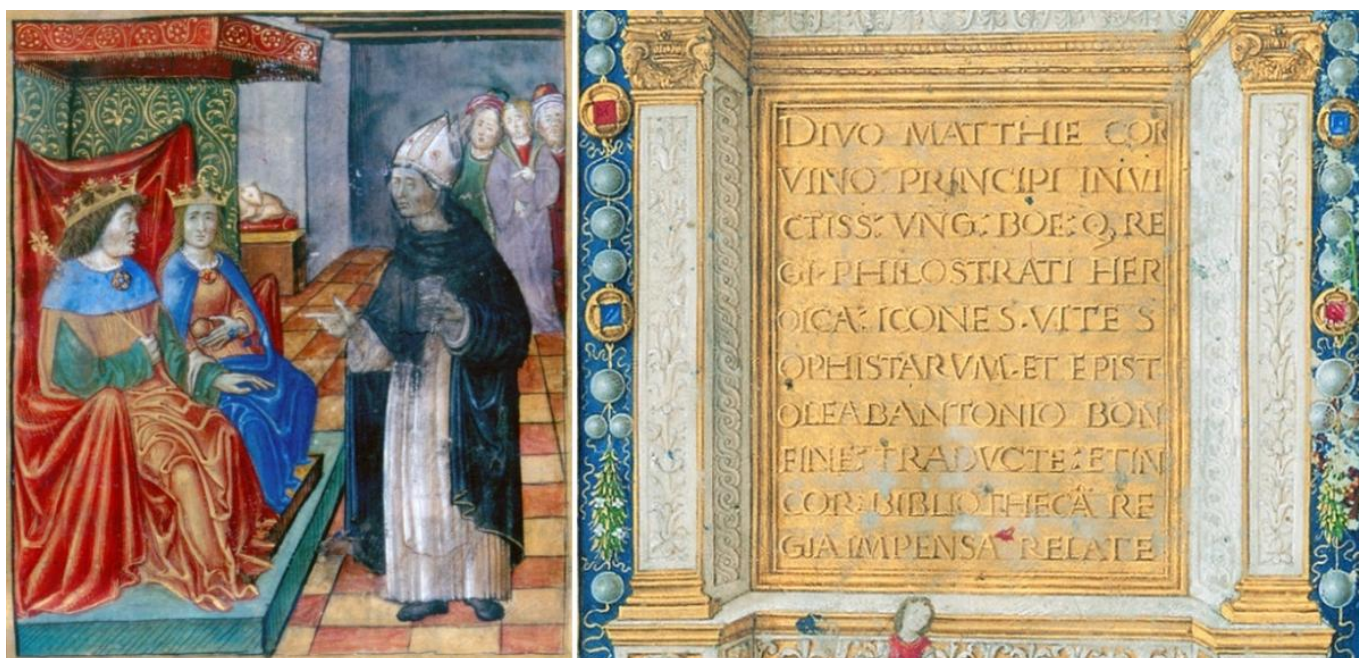 DIVO MATTHIE COR
VINO PRINCIPI INVI
CTISS: VNG: BOE: Q, RE
GI PHILOSTRATI HER
OICA: ICONES·VITE S
OPHISTARVM·ET EPIST
OLE AB ANTONIO BON
FINE: TRADVCTE: ET IN
COR: BIBLIOTHECĀ RE
GIA IMPENSA RELATE